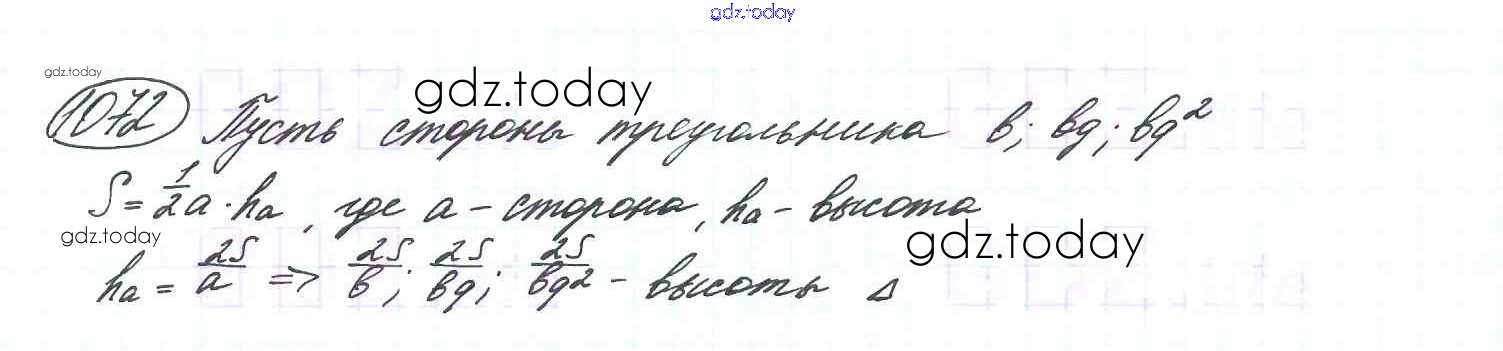 gdz.today
gdz.today
gdz.today
1072 Пусть стороны треугольника b; bq; bq²
S = 1/2 a · hₐ, где a - сторона, hₐ - высота
gdz.today
gdz.today
hₐ = 2S/a => 2S/b; 2S/bq; 2S/bq² - высоты Δ